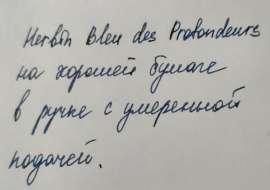 Herbin Bleu des Profondeurs
на хорошей бумаге
в ручке с умеренной
подачей.